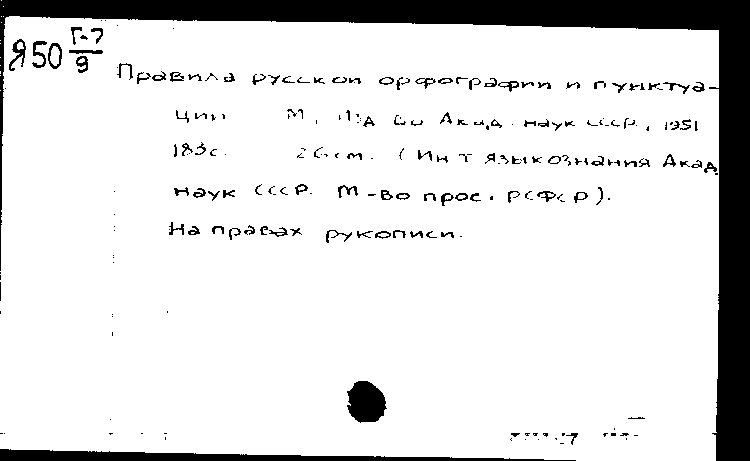 Я50 Г-7/9
Правила русской орфографии и пунктуа-
ции М, Изд во Акад. наук СССР, 1951
183с. 26см. (Ин т языкознания Акад
наук СССР. М-во прос. РСФСР).
На правах рукописи.